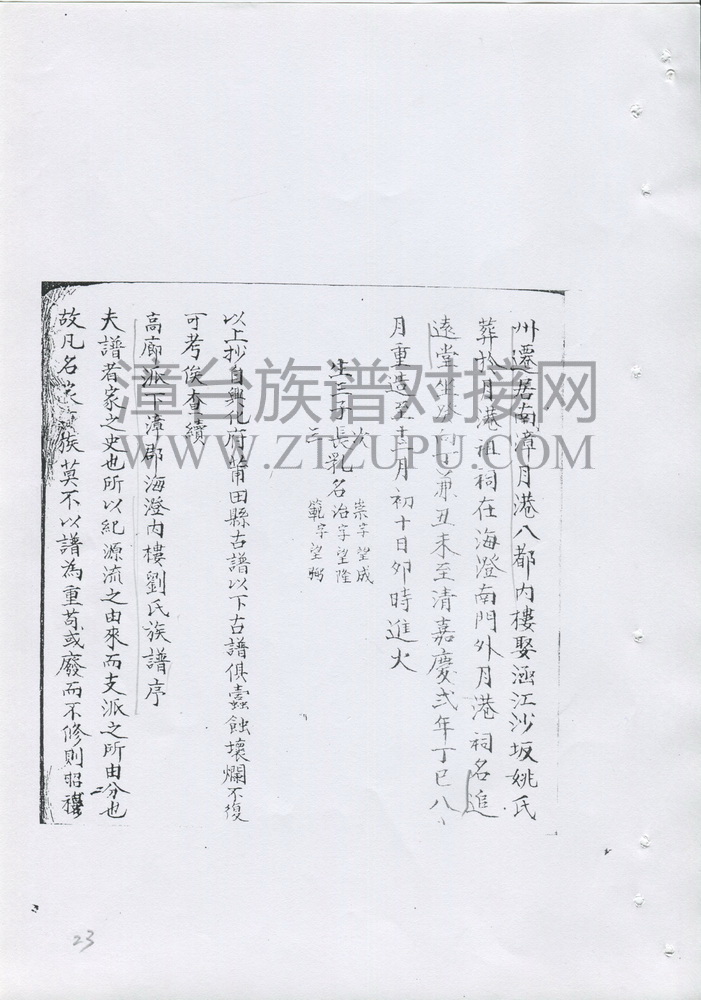 州遷居南漳月港八都內樓娶涵江沙坂姚氏
葬於月港祖祠在海澄南門外月港祠名追
遠堂坐癸向丁兼丑未至清嘉慶弍年丁巳八
月重造至十二月初十日卯時進火
生三子長乳名
次
三
崇字望成
治字望隆
範字望弼
以上抄自興化府莆田縣古譜以下古譜俱蠹蝕壞爛不復
可考俟查續
高廊派下漳郡海澄內樓劉氏族譜序
夫譜者家之史也所以紀源流之由來而支派之所由分也
故凡名家族莫不以譜為重苟或廢而不修則昭穆
漳台族谱对接网
WWW.ZTZUPU.COM
23